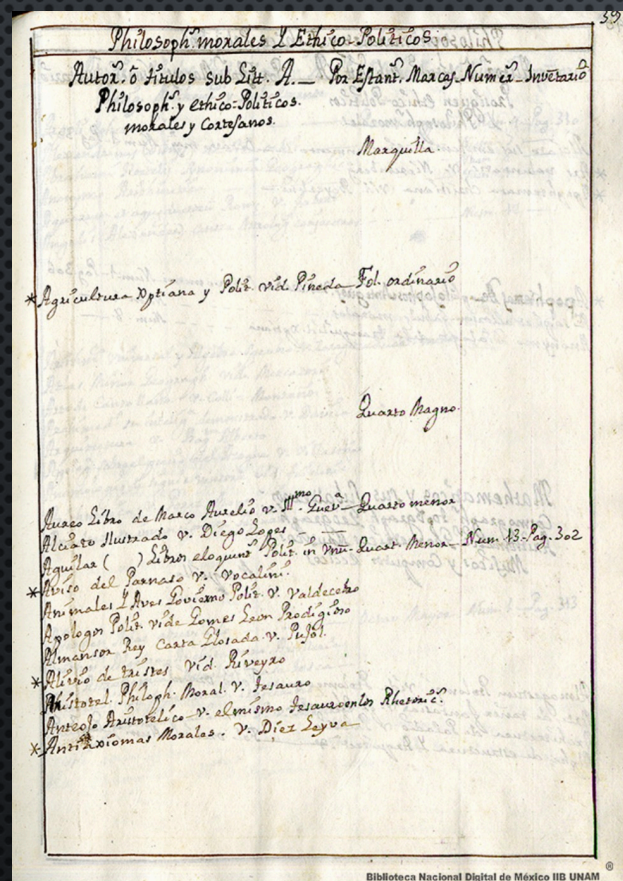 39
Philosoph.s morales Y Ethico-Politicos.
Autor.s ô titulos sub Litt. A. — Por Estant. Marcas Numer.s Inventario
Philosoph.s y ethico-Politicos.
morales y Cortesanos.
Marquilla.
*Agricultura Xptiana y Polit. vid. Pineda — Fol. ordinario
Quarto Magno.
Aureo Libro de Marco Aurelio v. Ill.mo Guev.a — Quarto menor
Alciato Ilustrado v. Diego Lopes
Aguilar ( ) Libros eloquent. Polit. in Vnu. Quart. Menor — Num. 13. Pag. 302
*Aviso del Parnaso v. Vocalini.
Animales Y Aves Govierno Polit. v. Valdecebro
Apologos Polit. vide Gomes Leon Prodigioso
Almansor Rey Carta Glosada v. Pujol.
*Alivio de tristes vid. Riveyro
Aristotel. Philoph. Moral. v. Tesauro
Anteojo Aristotelico v. el mismo Tesauro en los Rhetoric.
*Anti Axiomas Morales. v. Diez Leyva
Biblioteca Nacional Digital de México IIB UNAM ®